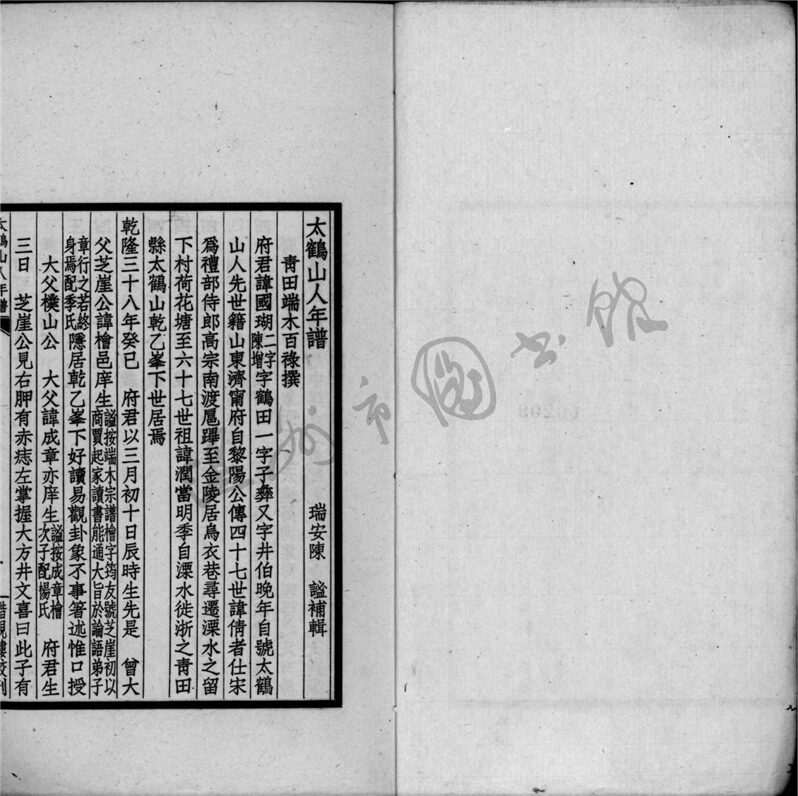 太鶴山人年譜
青田端木百祿撰　瑞安陳　謐補輯
府君諱國瑚二字陳增字鶴田一字子彝又字井伯晚年自號太鶴
山人先世籍山東濟甯府自黎陽公傳四十七世諱倩者仕宋
爲禮部侍郎高宗南渡扈蹕至金陵居烏衣巷尋遷溧水之留
下村荷花塘至六十七世祖諱潤當明季自溧水徙浙之青田
縣太鶴山乾乙峯下世居焉
乾隆三十八年癸巳　府君以三月初十日辰時生先是　曾大
父芝崖公諱檜邑庠生謐按端木宗譜檜字筠友號芝崖初以商賈起家讀書能通大旨於論語弟子
章行之若終身焉配季氏隱居乾乙峯下好讀易觀卦象不事箸述惟口授
大父樸山公　大父諱成章亦庠生謐按成章檜次子配楊氏　府君生
三日　芝崖公見右胛有赤痣左掌握大方井文喜曰此子有
太鶴山人年譜
惜硯樓校刊
州市圖書館